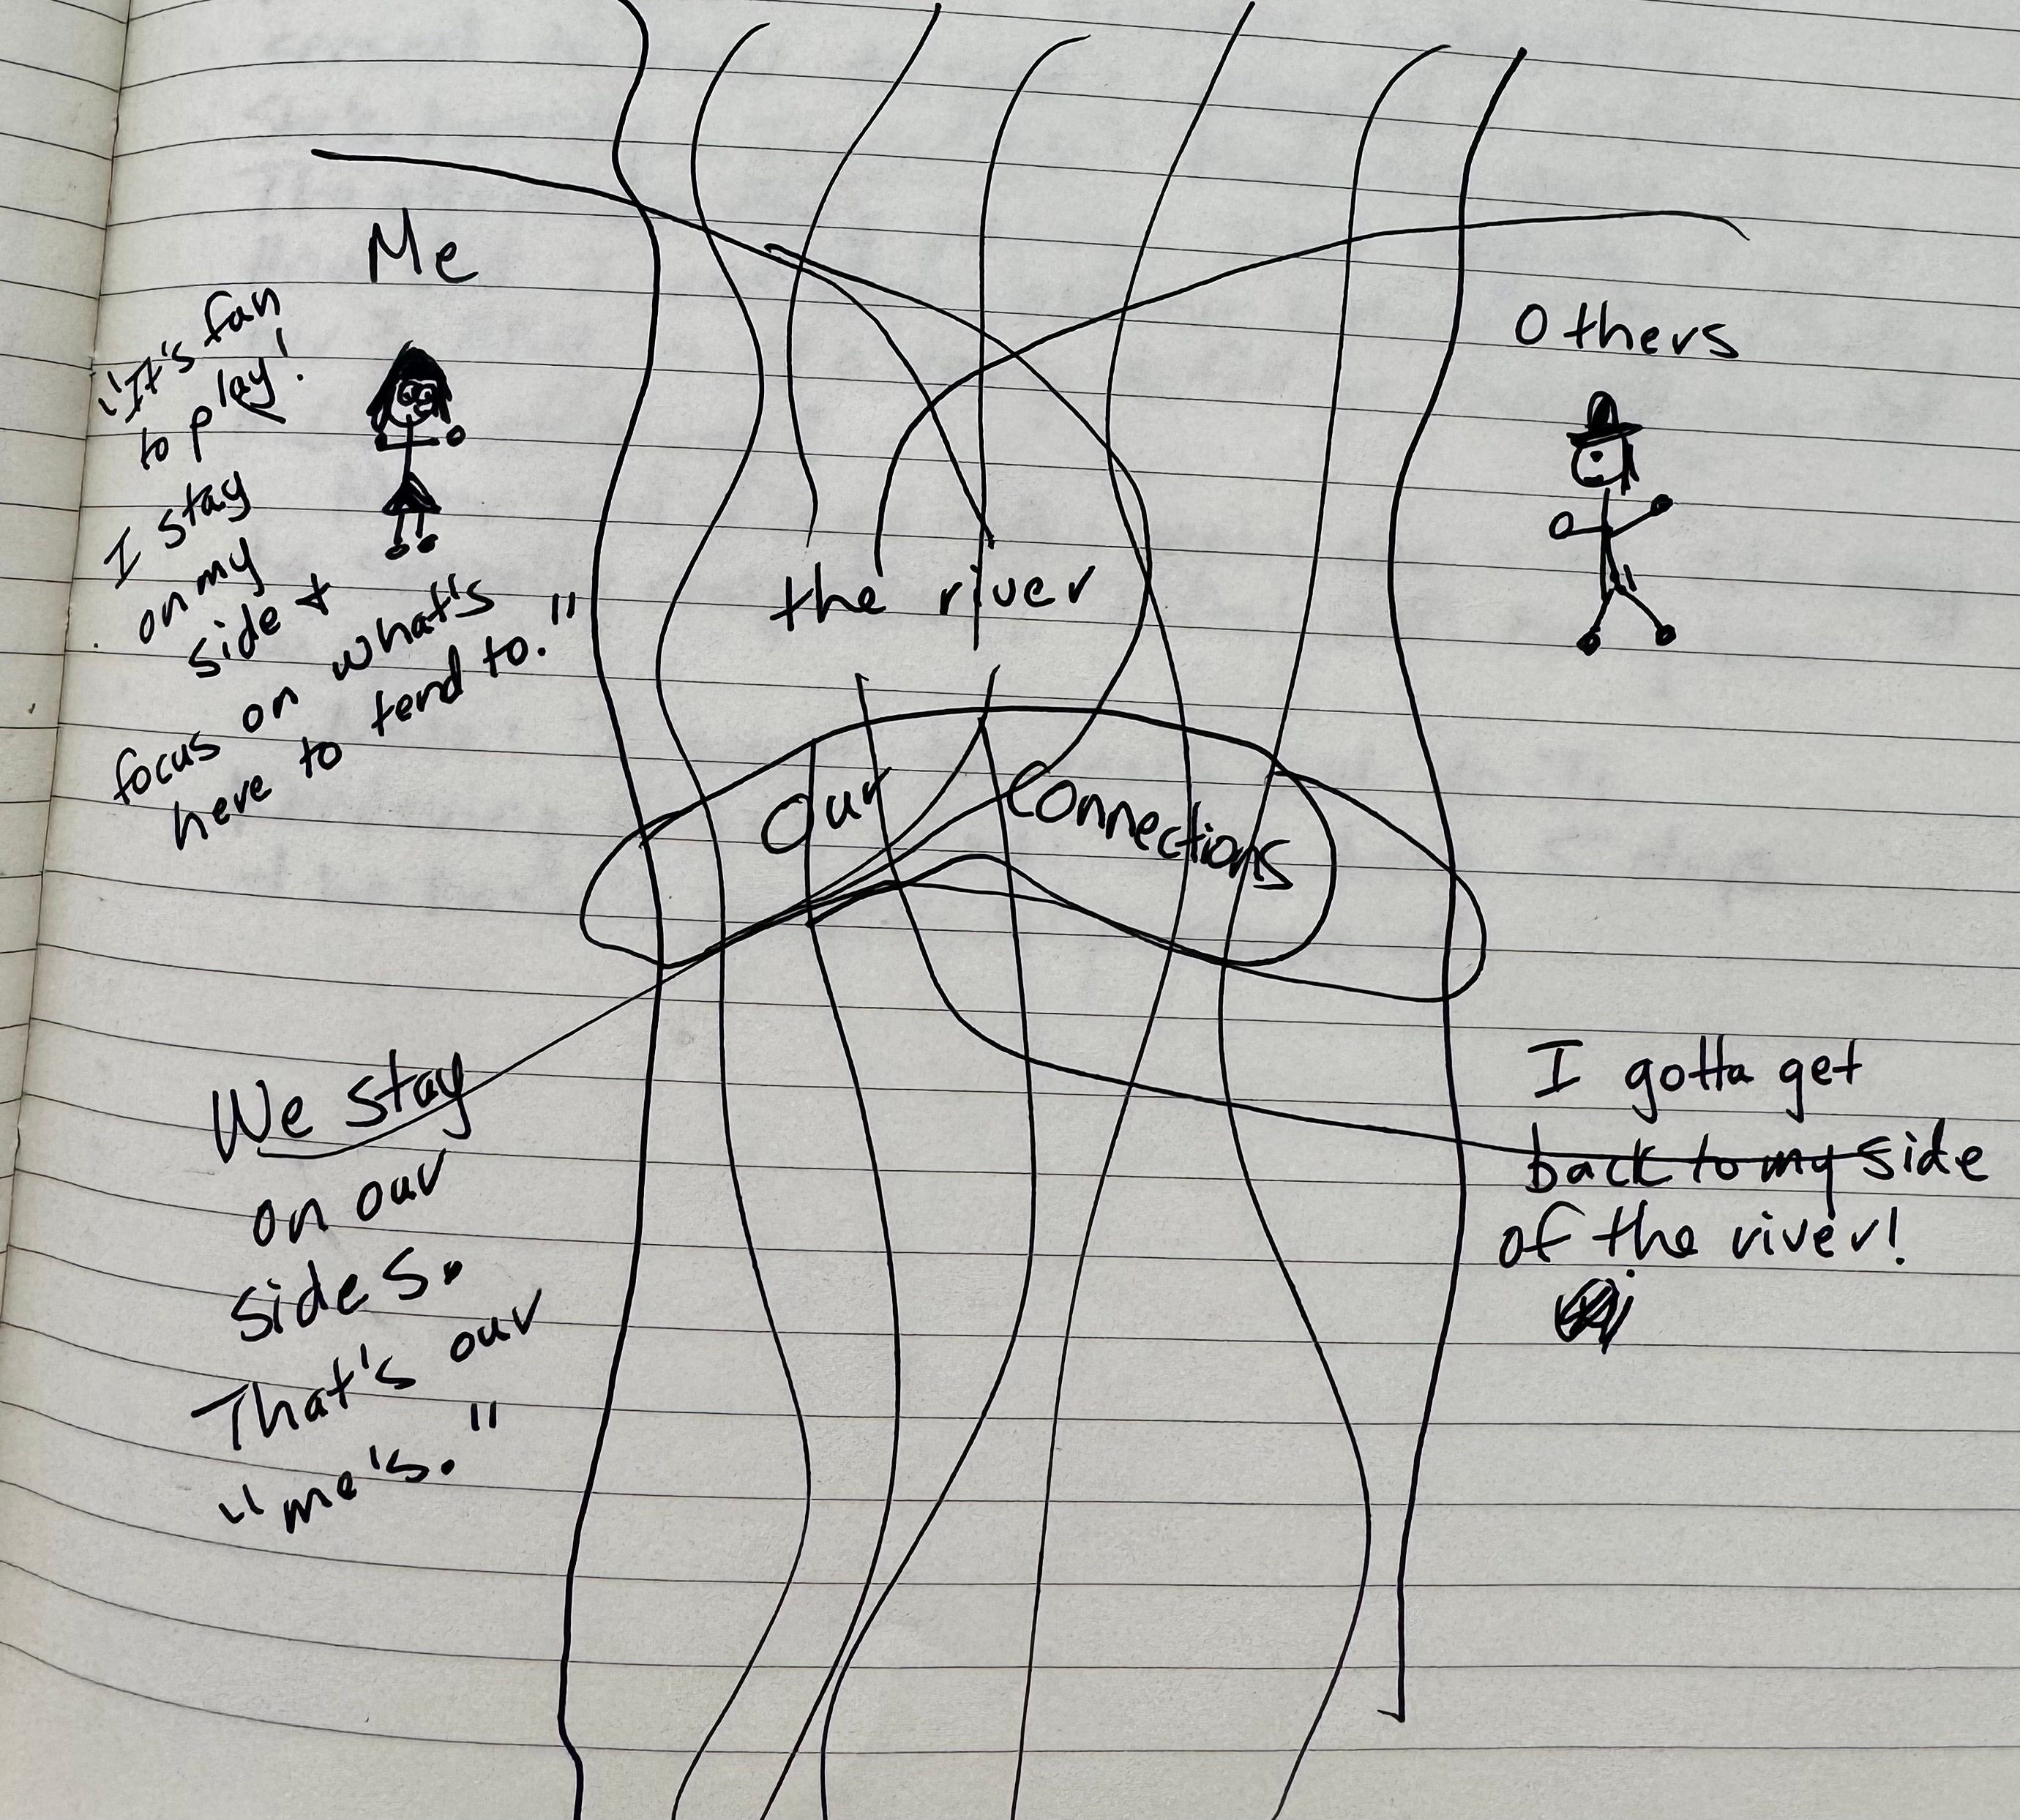 Me
"It's fun
to play!
I stay
on my
side +
focus on what's
here to tend to."
the river
Others
Our Connections
We stay
on our
sides.
That's our
"me's."
I gotta get
back to my side
of the river!